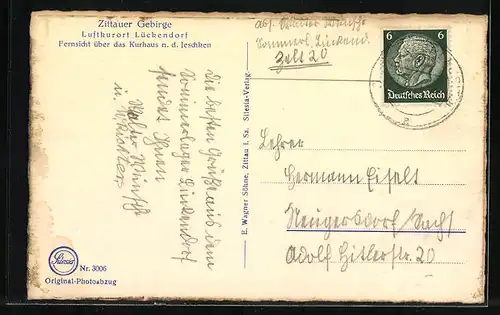 Zittauer Gebirge
Luftkurort Lückendorf
Fernsicht über das Kurhaus n. d. Jeschken
Abs. Walter Wünsche
Sommerl. Lückend.
Zelt 20
6 6
Deutsches Reich
Die besten Grüße aus dem
Sommerlager Lückendorf
sendet Ihnen
Walter Wünsche
u. W. Richter
E. Wagner Söhne, Zittau i. Sa. Silesia-Verlag
Lehrer
Hermann Eiselt
Neugersdorf Sachs
Adolf Hitlerstr. 20
Nr. 3006
Original-Photoabzug